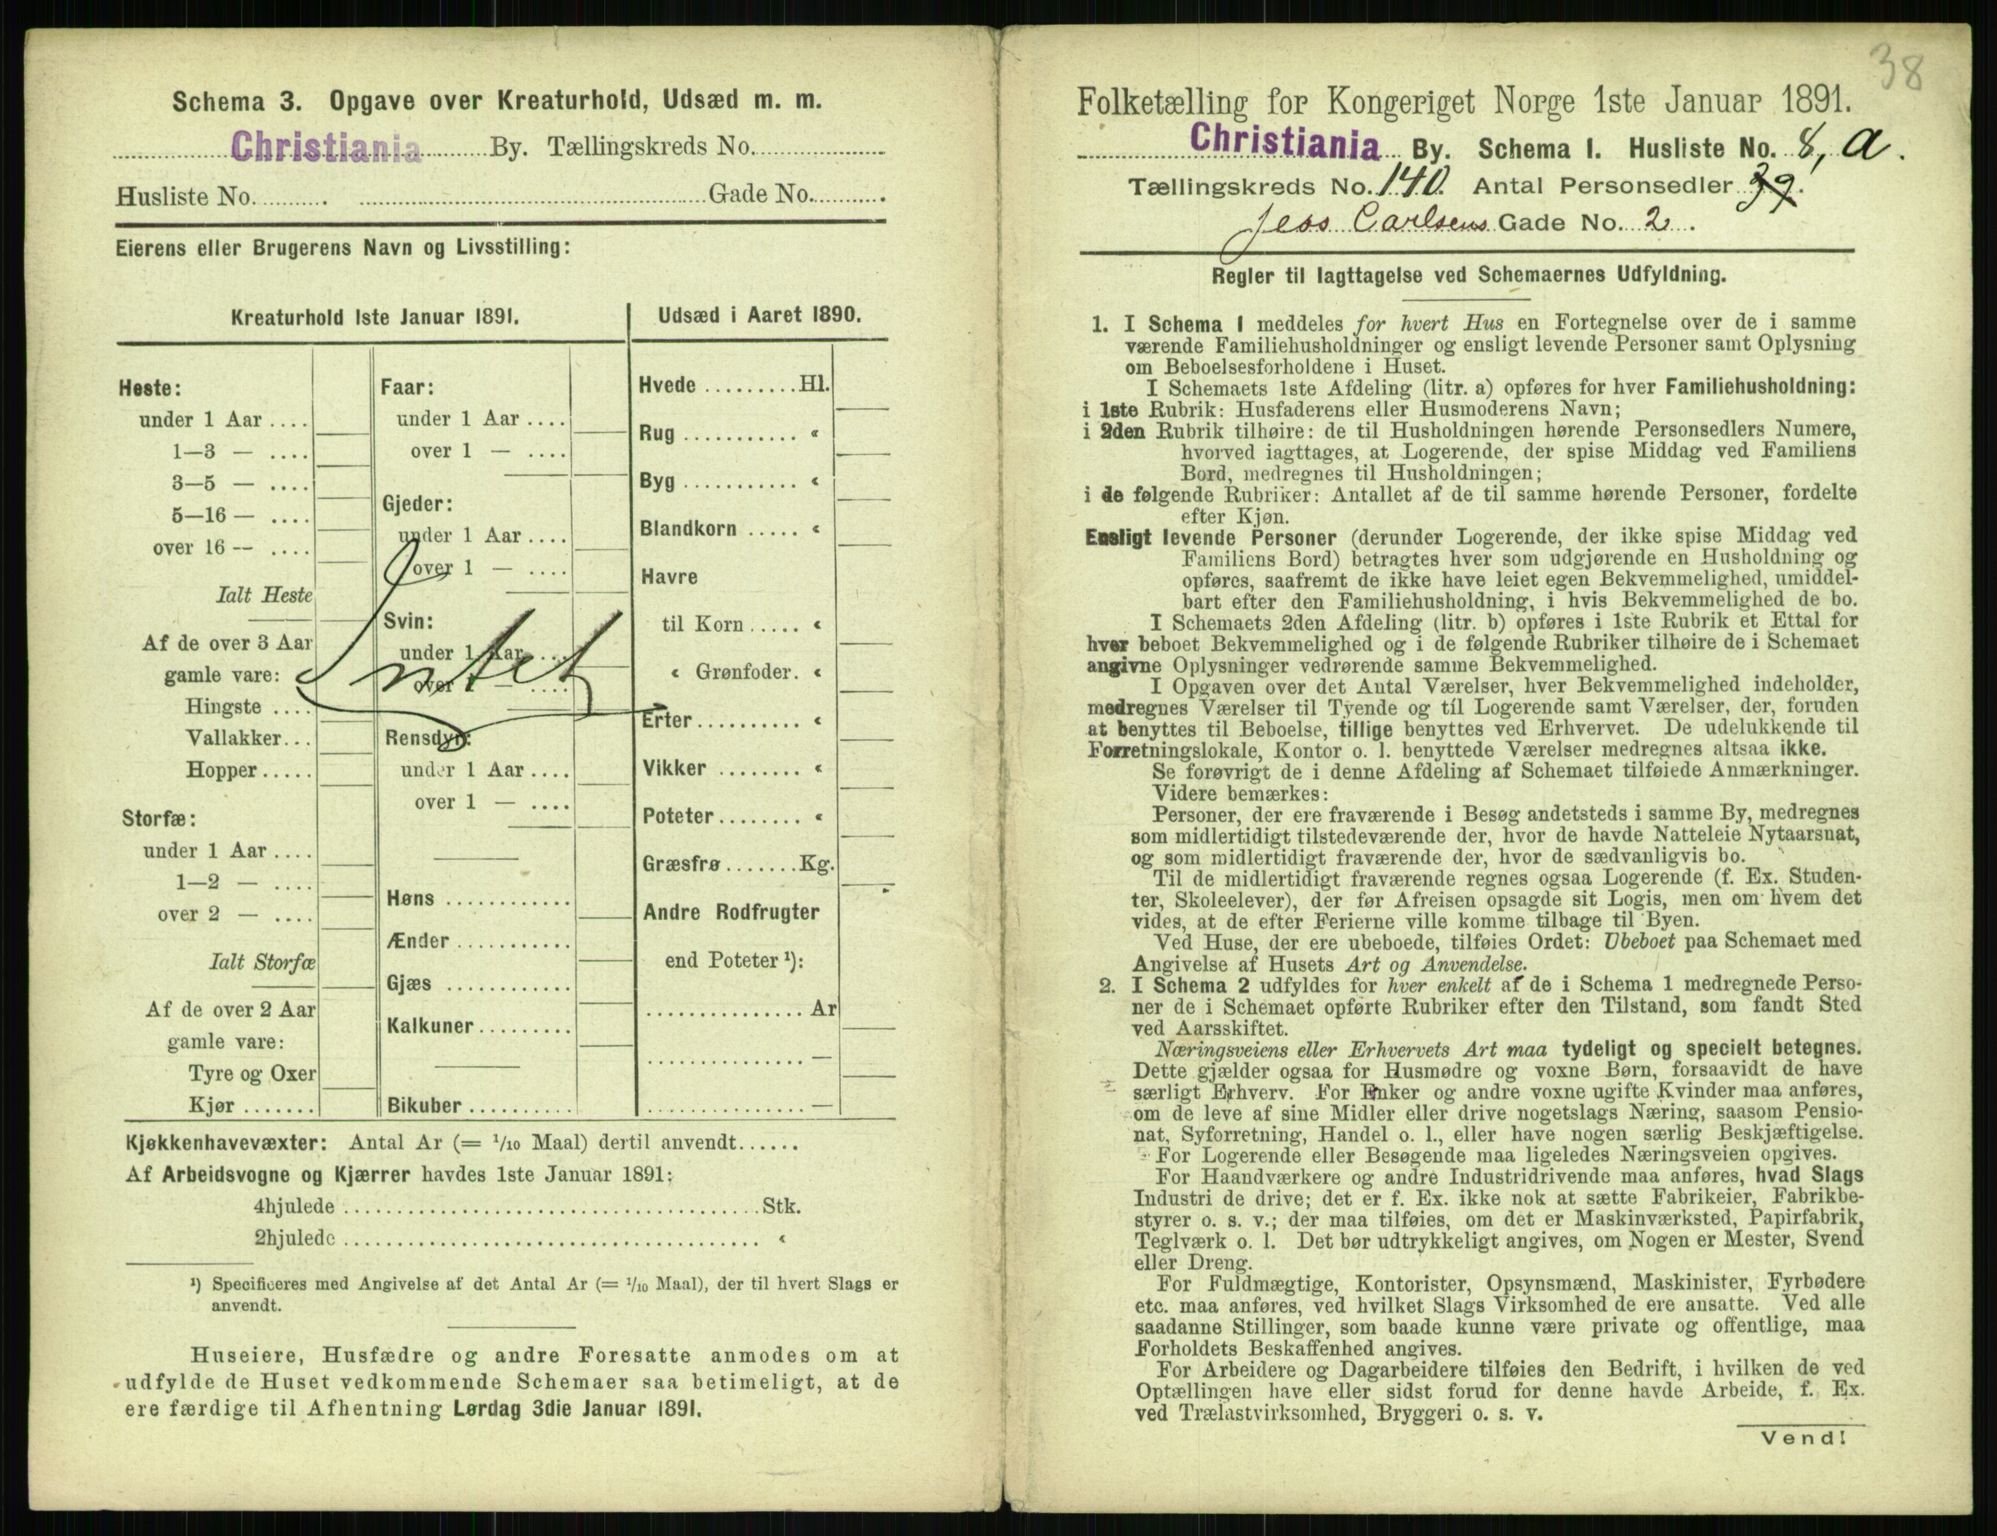 Schema 3. Opgave over Kreaturhold, Udsæd m. m.
Christiania By. Tællingskreds No.
Husliste No. Gade No.
Eierens eller Brugerens Navn og Livsstilling:
Kreaturhold 1ste Januar 1891.
Heste:
under 1 Aar ....
1—3 — ....
3—5 — ....
5—16 — ....
over 16 — ....
Ialt Heste
Af de over 3 Aar
gamle vare:
Hingste ....
Vallakker...
Hopper.....
Storfæ:
under 1 Aar ....
1—2 — ....
over 2 — ....
Ialt Storfæ
Af de over 2 Aar
gamle vare:
Tyre og Oxer
Kjør.......
Faar:
under 1 Aar ....
over 1 — ....
Gjeder:
under 1 Aar ....
over 1 — ....
Svin:
under 1 Aar ....
over 1 — ....
Intet
Rensdyr:
under 1 Aar ....
over 1 — ....
Høns ............
Ænder ...........
Gjæs ............
Kalkuner.........
Bikuber ..........
Udsæd i Aaret 1890.
Hvede .........Hl.
Rug ........... «
Byg ........... «
Blandkorn ..... «
Havre
til Korn ..... «
« Grønfoder. «
Erter.......... «
Vikker ........ «
Poteter........ «
Græsfrø.......Kg.
Andre Rodfrugter
end Poteter ¹):
............... Ar
............... —
............... —
Kjøkkenhavevæxter: Antal Ar (= 1/10 Maal) dertil anvendt......
Af Arbeidsvogne og Kjærrer havdes 1ste Januar 1891:
4hjulede ........................................Stk.
2hjulede ........................................ «
¹) Specificeres med Angivelse af det Antal Ar (= 1/10 Maal), der til hvert Slags er
anvendt.
Huseiere, Husfædre og andre Foresatte anmodes om at
udfylde de Huset vedkommende Schemaer saa betimeligt, at de
ere færdige til Afhentning Lørdag 3die Januar 1891.
38
Folketælling for Kongeriget Norge 1ste Januar 1891.
Christiania By. Schema I. Husliste No. 8, a.
Tællingskreds No. 140. Antal Personsedler 39.
Jess Carlsens Gade No. 2.
Regler til Iagttagelse ved Schemaernes Udfyldning.
1. I Schema 1 meddeles for hvert Hus en Fortegnelse over de i samme
værende Familiehusholdninger og ensligt levende Personer samt Oplysning
om Beboelsesforholdene i Huset.
I Schemaets 1ste Afdeling (litr. a) opføres for hver Familiehusholdning:
i 1ste Rubrik: Husfaderens eller Husmoderens Navn;
i 2den Rubrik tilhøire: de til Husholdningen hørende Personsedlers Numere,
hvorved iagttages, at Logerende, der spise Middag ved Familiens
Bord, medregnes til Husholdningen;
i de følgende Rubriker: Antallet af de til samme hørende Personer, fordelte
efter Kjøn.
Ensligt levende Personer (derunder Logerende, der ikke spise Middag ved
Familiens Bord) betragtes hver som udgjørende en Husholdning og
opføres, saafremt de ikke have leiet egen Bekvemmelighed, umiddel-
bart efter den Familiehusholdning, i hvis Bekvemmelighed de bo.
I Schemaets 2den Afdeling (litr. b) opføres i 1ste Rubrik et Ettal for
hver beboet Bekvemmelighed og i de følgende Rubriker tilhøire de i Schemaet
angivne Oplysninger vedrørende samme Bekvemmelighed.
I Opgaven over det Antal Værelser, hver Bekvemmelighed indeholder,
medregnes Værelser til Tyende og til Logerende samt Værelser, der, foruden
at benyttes til Beboelse, tillige benyttes ved Erhvervet. De udelukkende til
Forretningslokale, Kontor o. l. benyttede Værelser medregnes altsaa ikke.
Se forøvrigt de i denne Afdeling af Schemaet tilføiede Anmærkninger.
Videre bemærkes:
Personer, der ere fraværende i Besøg andetsteds i samme By, medregnes
som midlertidigt tilstedeværende der, hvor de havde Natteleie Nytaarsnat,
og som midlertidigt fraværende der, hvor de sædvanligvis bo.
Til de midlertidigt fraværende regnes ogsaa Logerende (f. Ex. Studen-
ter, Skoleelever), der før Afreisen opsagde sit Logis, men om hvem det
vides, at de efter Ferierne ville komme tilbage til Byen.
Ved Huse, der ere ubeboede, tilføies Ordet: Ubeboet paa Schemaet med
Angivelse af Husets Art og Anvendelse.
2. I Schema 2 udfyldes for hver enkelt af de i Schema 1 medregnede Perso-
ner de i Schemaet opførte Rubriker efter den Tilstand, som fandt Sted
ved Aarsskiftet.
Næringsveiens eller Erhvervets Art maa tydeligt og specielt betegnes.
Dette gjælder ogsaa for Husmødre og voxne Børn, forsaavidt de have
særligt Erhverv. For Enker og andre voxne ugifte Kvinder maa anføres,
om de leve af sine Midler eller drive nogetslags Næring, saasom Pensio-
nat, Syforretning, Handel o. l., eller have nogen særlig Beskjæftigelse.
For Logerende eller Besøgende maa ligeledes Næringsveien opgives.
For Haandværkere og andre Industridrivende maa anføres, hvad Slags
Industri de drive; det er f. Ex. ikke nok at sætte Fabrikeier, Fabrikbe-
styrer o. s. v.; der maa tilføies, om det er Maskinværksted, Papirfabrik,
Teglværk o. l. Det bør udtrykkeligt angives, om Nogen er Mester, Svend
eller Dreng.
For Fuldmægtige, Kontorister, Opsynsmænd, Maskinister, Fyrbødere
etc. maa anføres, ved hvilket Slags Virksomhed de ere ansatte. Ved alle
saadanne Stillinger, som baade kunne være private og offentlige, maa
Forholdets Beskaffenhed angives.
For Arbeidere og Dagarbeidere tilføies den Bedrift, i hvilken de ved
Optællingen have eller sidst forud for denne havde Arbeide, f. Ex.
ved Trælastvirksomhed, Bryggeri o. s. v.
Vend!